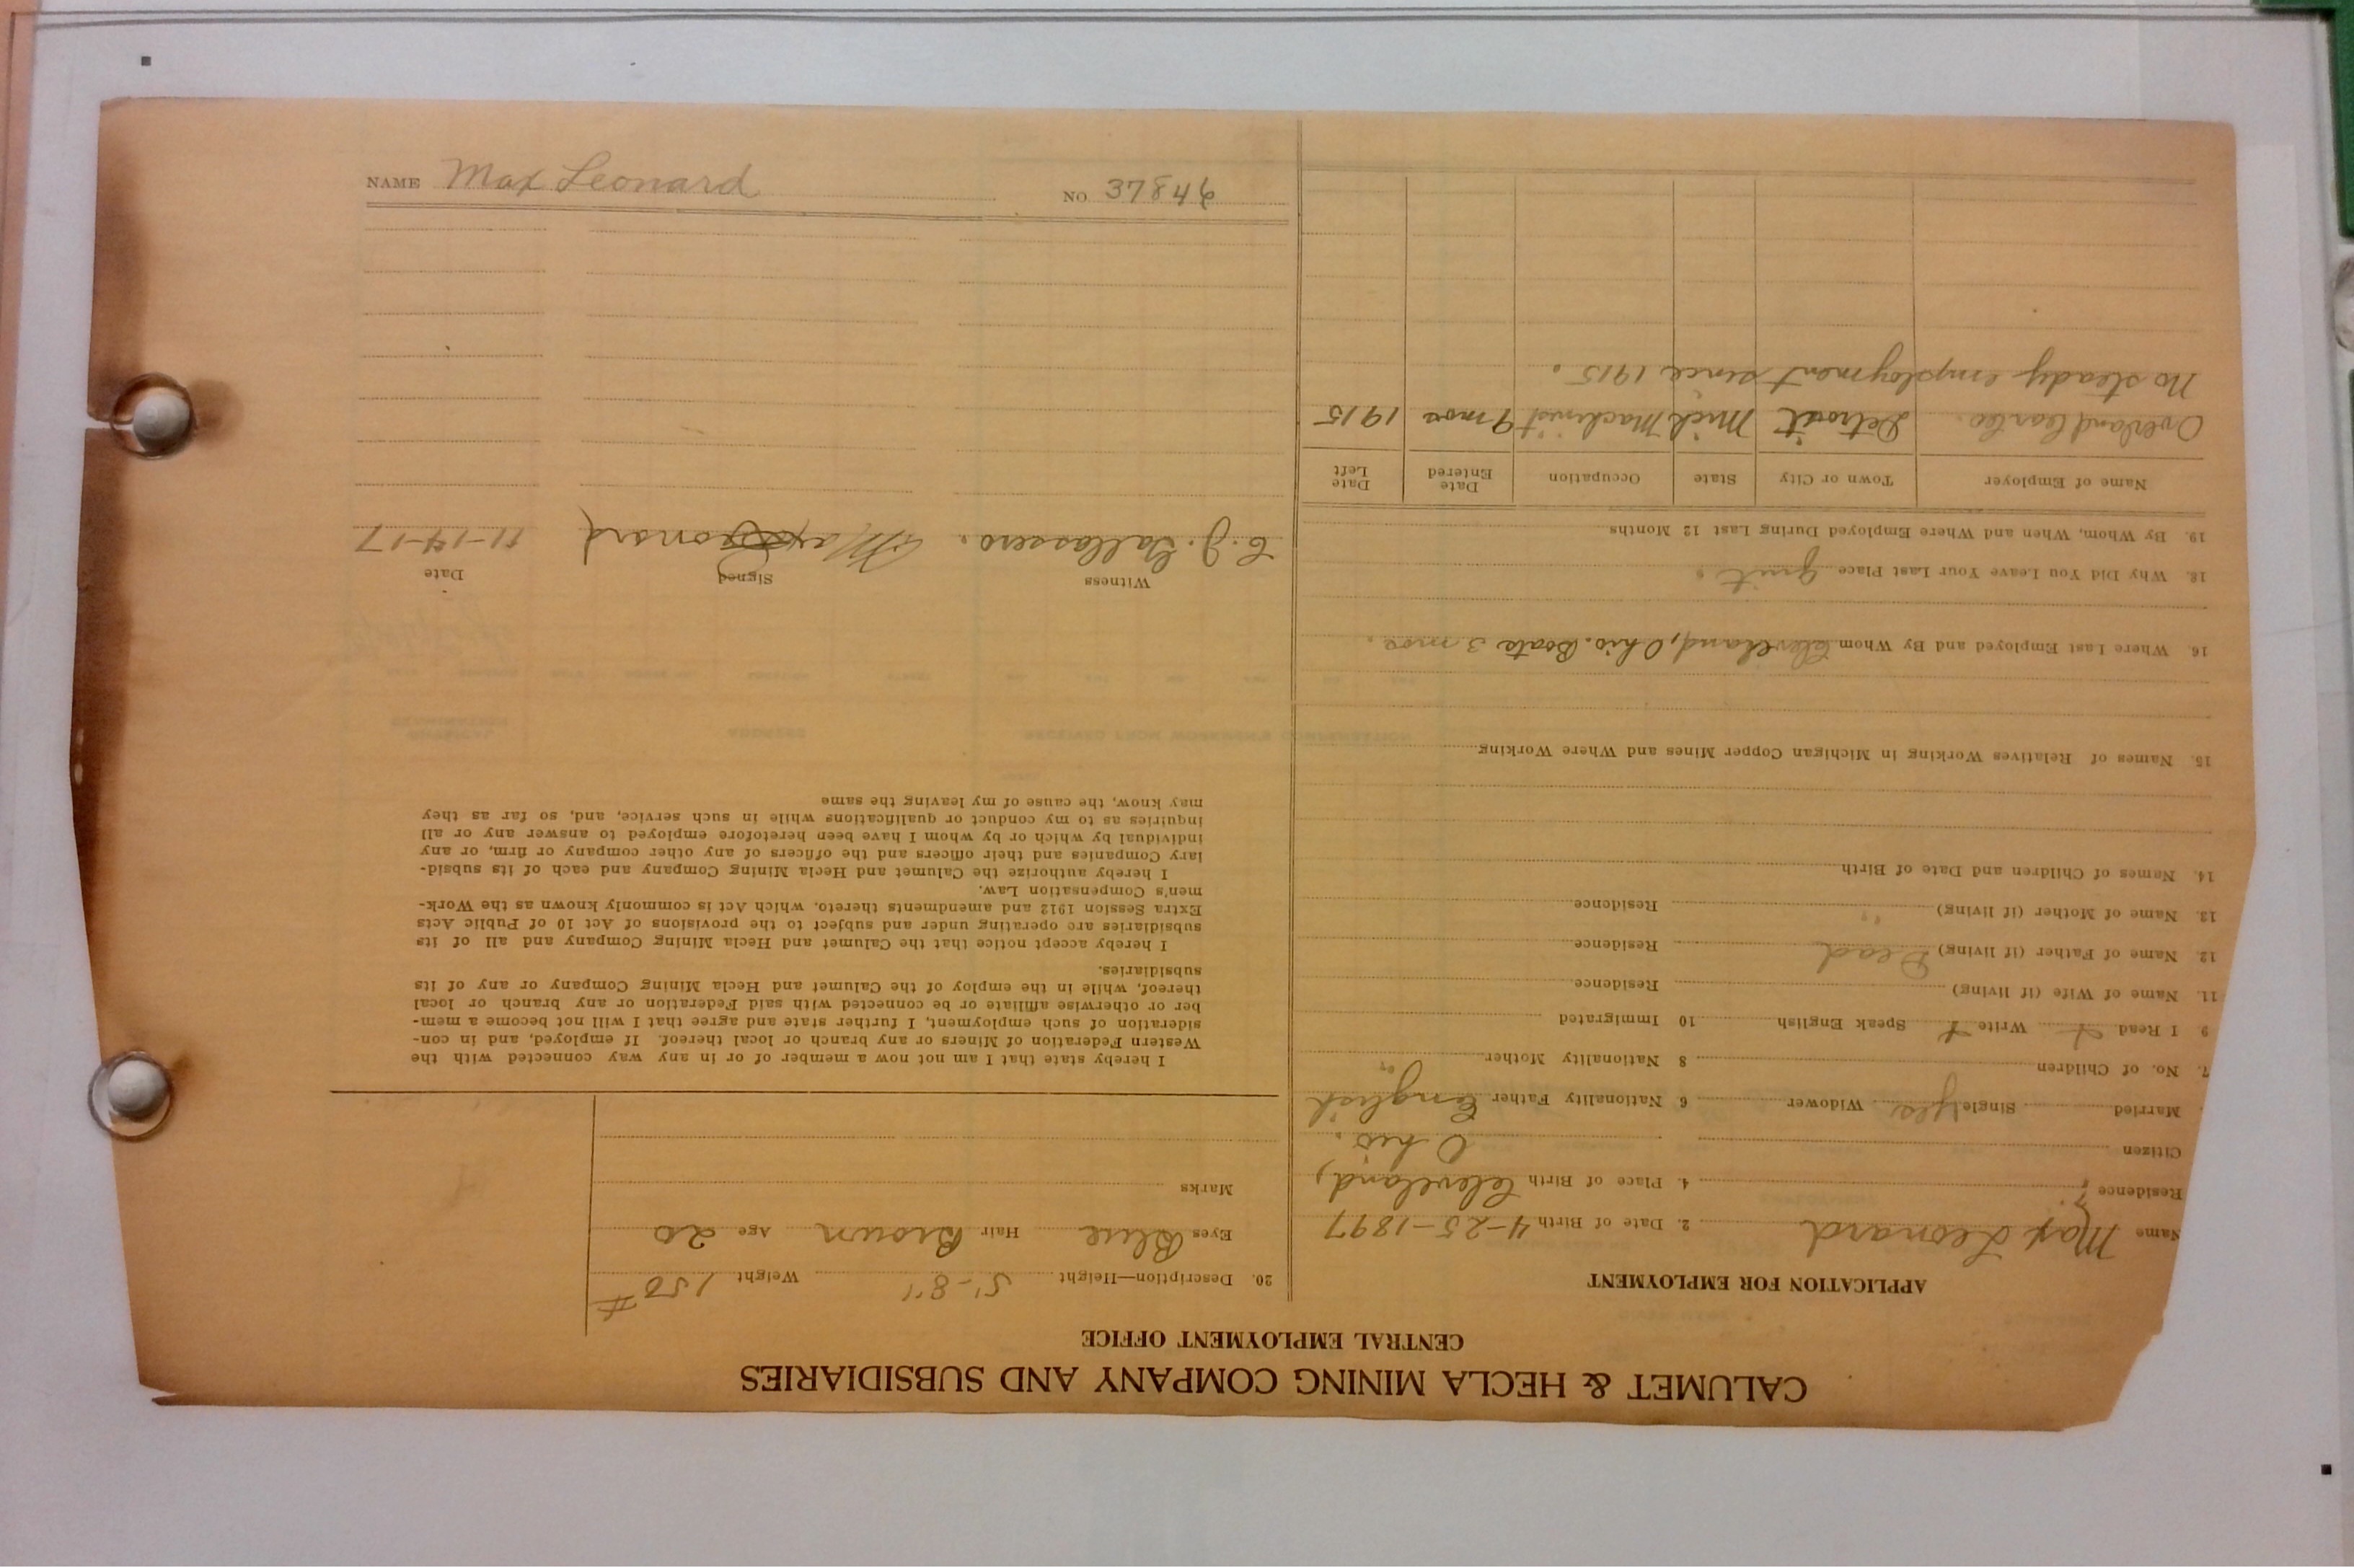 CALUMET & HECLA MINING COMPANY AND SUBSIDIARIES
CENTRAL EMPLOYMENT OFFICE
APPLICATION FOR EMPLOYMENT
Name Max Leonard 2. Date of Birth 4-25-1897
Residence 4. Place of Birth Cleveland,
Citizen Ohio.
Married Single yes Widower 6 Nationality Father English
7. No. of Children 8 Nationality Mother "
9 I Read Write Speak English 10 Immigrated
11. Name of Wife (if living) Residence
12. Name of Father (if living) Dead Residence
13. Name of Mother (if living) " Residence
14. Names of Children and Date of Birth
15. Names of Relatives Working in Michigan Copper Mines and Where Working
16. Where Last Employed and By Whom Cleveland, Ohio. Boats 3 mos.
18. Why Did You Leave Your Last Place quit.
19. By Whom, When and Where Employed During Last 12 Months
Name of Employer Town or City State Occupation Date Entered Date Left
Overland Car Co. Detroit Mich Machinist 9 mos 1915
No steady employment since 1915.
20. Description—Height 5'-8" Weight 150 #
Eyes Blue Hair Brown Age 20
Marks
I hereby state that I am not now a member of or in any way connected with the
Western Federation of Miners or any branch or local thereof. If employed, and in con-
sideration of such employment, I further state and agree that I will not become a mem-
ber or otherwise affiliate or be connected with said Federation or any branch or local
thereof, while in the employ of the Calumet and Hecla Mining Company or any of its
subsidiaries.
I hereby accept notice that the Calumet and Hecla Mining Company and all of its
subsidiaries are operating under and subject to the provisions of Act 10 of Public Acts
Extra Session 1912 and amendments thereto, which Act is commonly known as the Work-
men's Compensation Law.
I hereby authorize the Calumet and Hecla Mining Company and each of its subsid-
iary Companies and their officers and the officers of any other company or firm, or any
individual by which or by whom I have been heretofore employed to answer any or all
inquiries as to my conduct or qualifications while in such service, and, so far as they
may know, the cause of my leaving the same
Witness Signed Date
Max Leonard 11-14-17
NAME Max Leonard NO. 37846